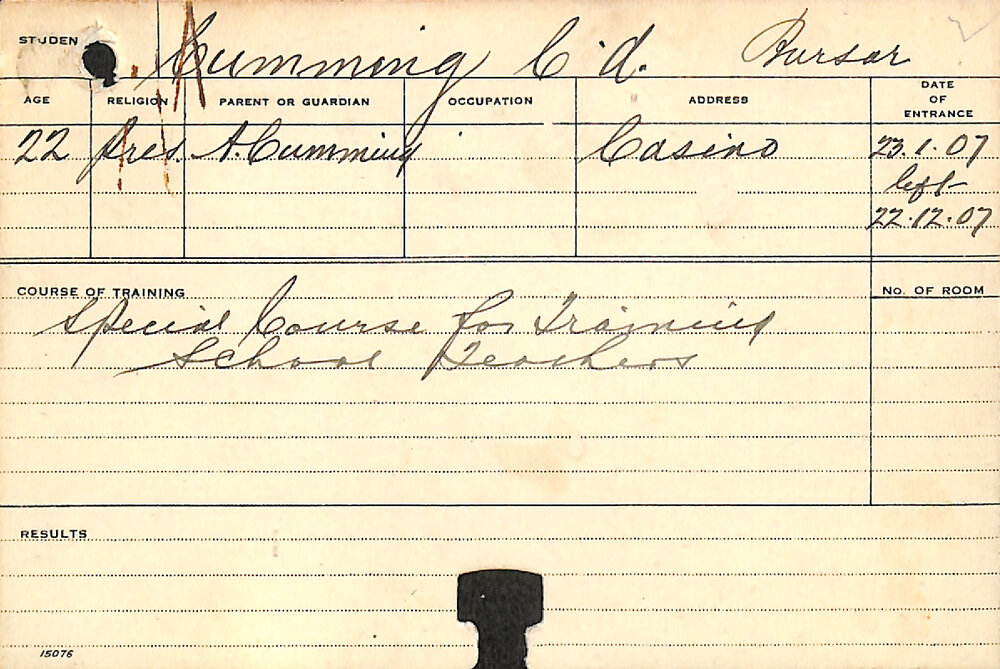 STUDEN Cumming C. d. Bursar
AGE RELIGION PARENT OR GUARDIAN OCCUPATION ADDRESS DATE OF ENTRANCE
22 Pres. A. Cumming Casino 23.1.07
left
22.12.07
COURSE OF TRAINING No. OF ROOM
Special Course for Training
School Teachers
RESULTS
15076